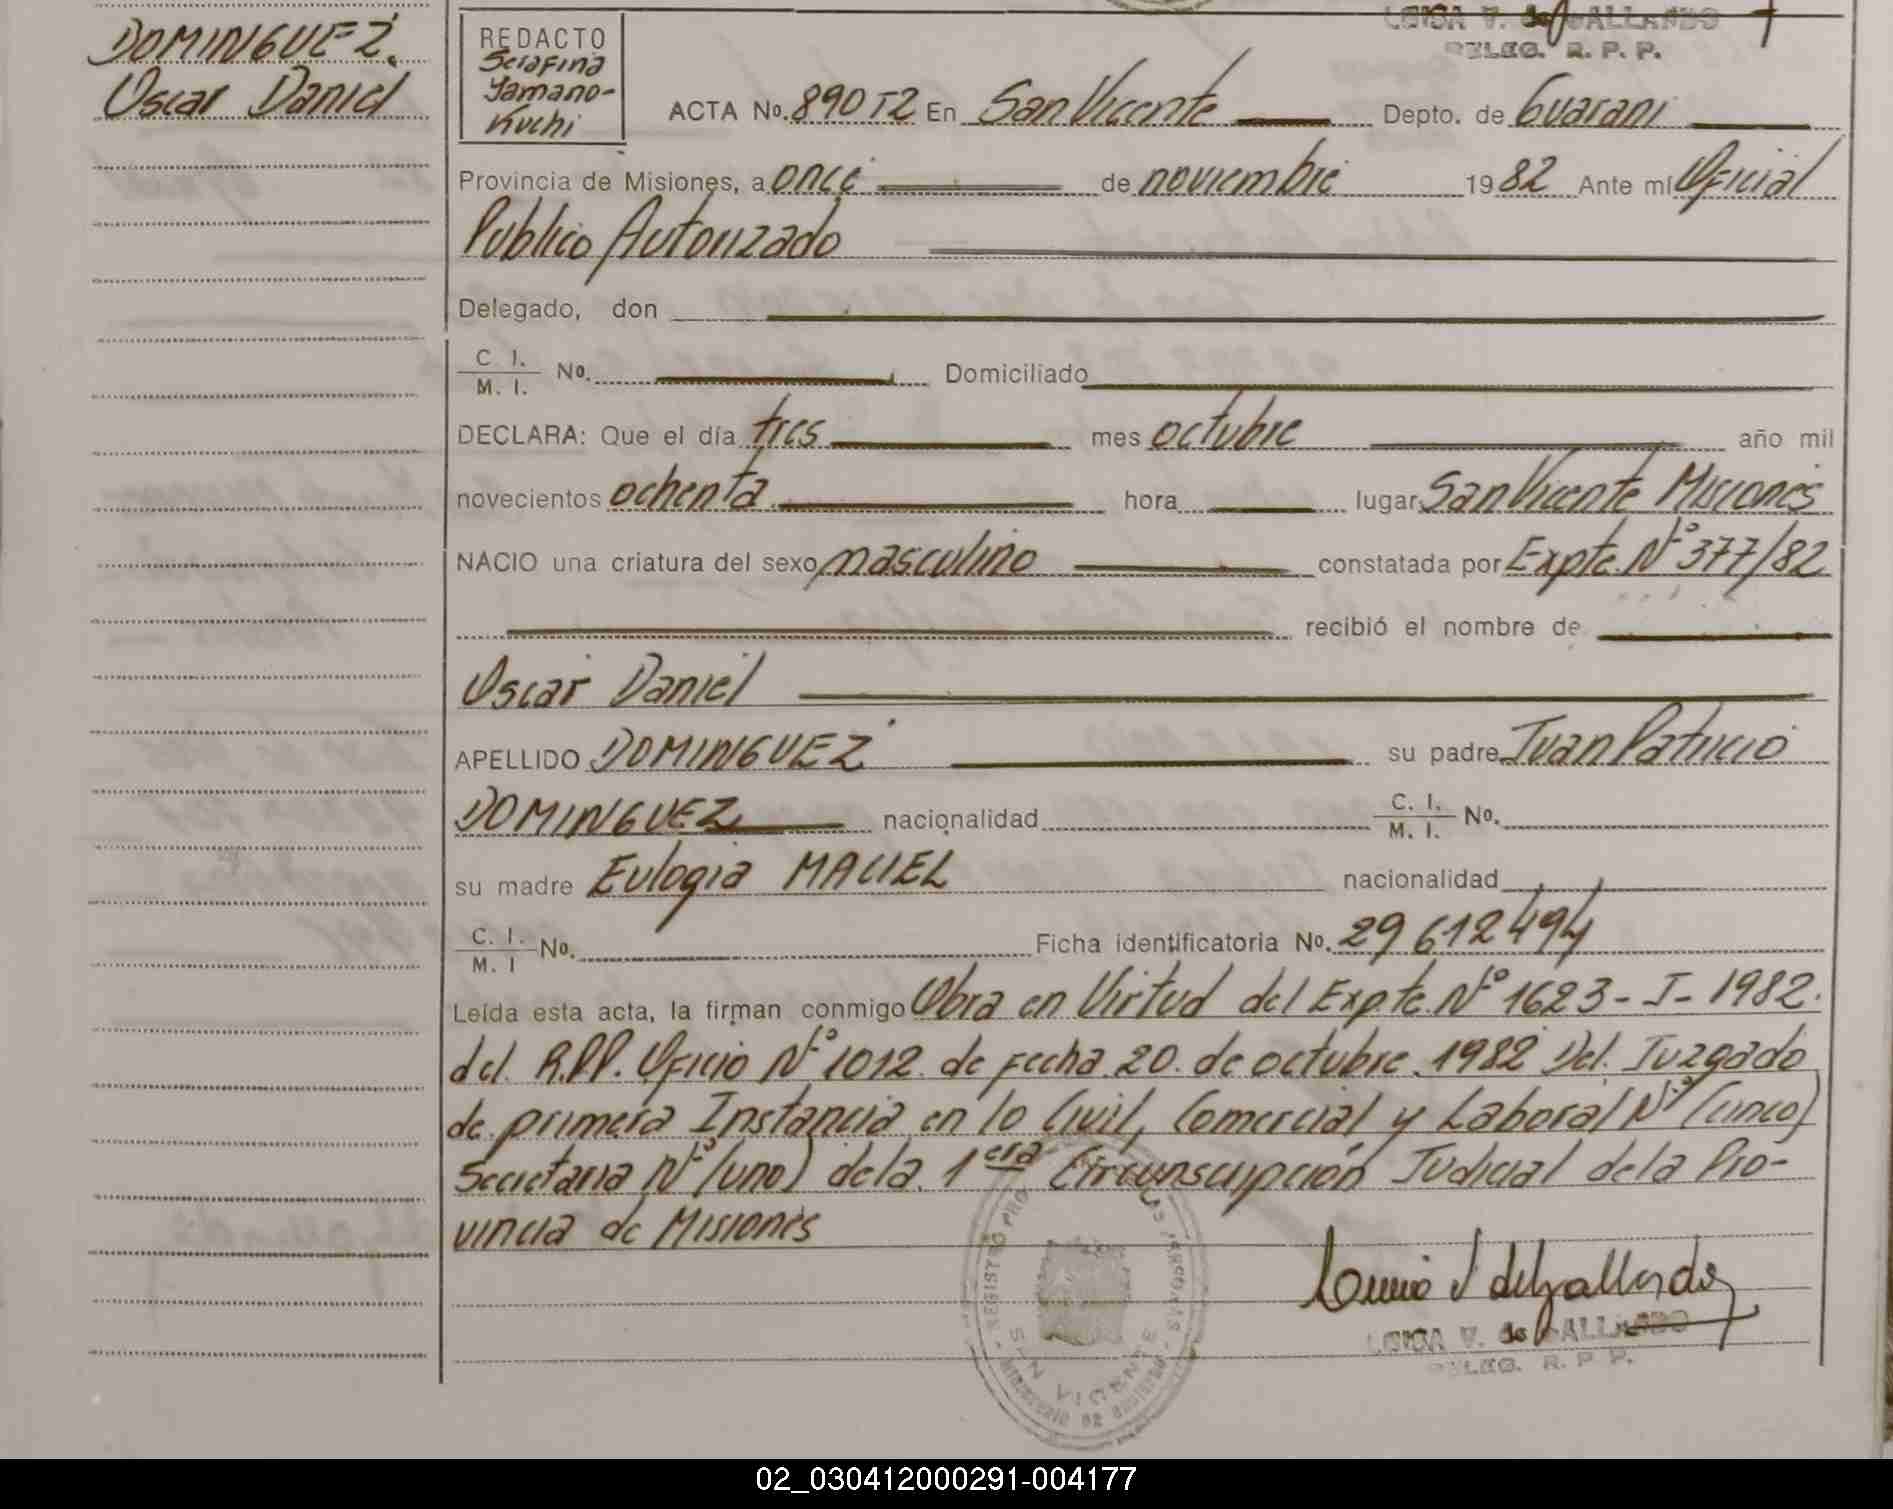 DOMINGUEZ.
Oscar Daniel
REDACTO
Serafina
Yamano-
Kuchi
LUISA V. de GALLARDO
DELEG. R. P. P.
ACTA No. 890 T2 En San Vicente Depto. de Guarani
Provincia de Misiones, a once de noviembre 1982 Ante mí Oficial
Publico Autorizado
Delegado, don
C. I. / M. I. No. Domiciliado
DECLARA: Que el día tres mes octubre año mil
novecientos ochenta hora lugar San Vicente Misiones
NACIO una criatura del sexo masculino constatada por Expte. Nº 377/82
recibió el nombre de
Oscar Daniel
APELLIDO DOMINGUEZ su padre Juan Patricio
DOMINGUEZ nacionalidad C. I. / M. I. No.
su madre Eulogia MACIEL nacionalidad
C. I. / M. I No. Ficha identificatoria No. 29 612494
Leída esta acta, la firman conmigo Obra en Virtud del Expte. Nº 1623-I-1982.
del R.P.P. Oficio Nº 1012 de fecha 20. de octubre. 1982 Del. Juzgado
de primera Instancia en lo Civil, Comercial y Laboral Nº (cinco)
Secretaria Nº (uno) de la 1era Circunscripción Judicial de la Pro-
vincia de Misiones
LUISA V. de GALLARDO
DELEG. R. P. P.
SAN VICENTE
02_030412000291-004177